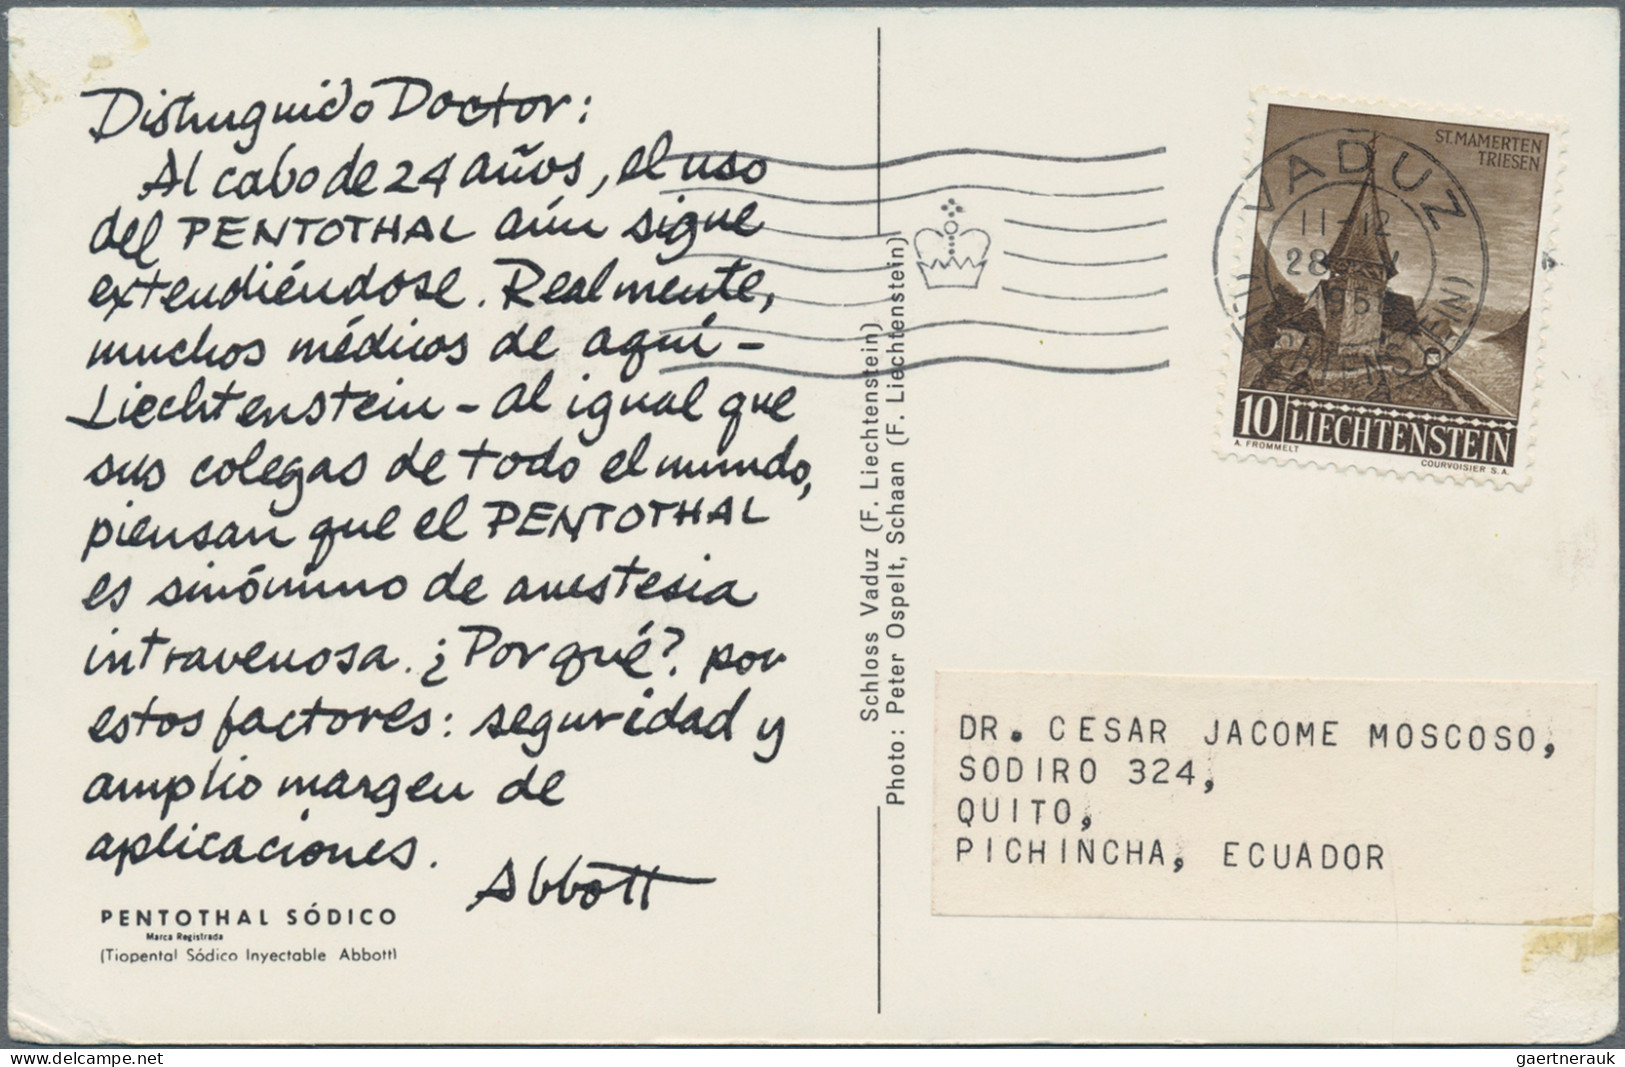 Distinguido Doctor:
Al cabo de 24 años, el uso
del PENTOTHAL aún sigue
extendiéndose. Realmente,
muchos médicos de aquí –
Liechtenstein – al igual que
sus colegas de todo el mundo,
piensan que el PENTOTHAL
es sinónimo de anestesia
intravenosa. ¿Por qué?. por
estos factores: seguridad y
amplio margen de
aplicaciones.
Abbott
PENTOTHAL SÓDICO
Marca Registrada
(Tiopental Sódico Inyectable Abbott)
Schloss Vaduz (F. Liechtenstein)
Photo: Peter Ospelt, Schaan (F. Liechtenstein)
ST. MAMERTEN
TRIESEN
VADUZ
11-12
28
10 LIECHTENSTEIN
A. FROMMELT
COURVOISIER S.A.
DR. CESAR JACOME MOSCOSO,
SODIRO 324,
QUITO,
PICHINCHA, ECUADOR
delcampe.net
gaertnerauk